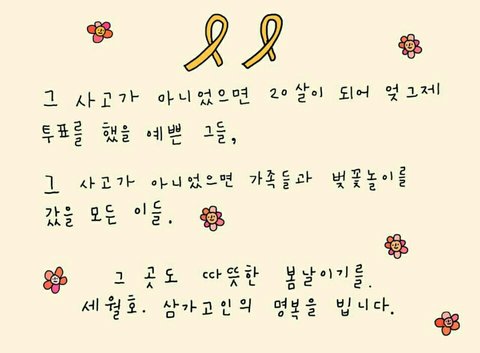 그 사고가 아니었으면 20살이 되어 엊그제
투표를 했을 예쁜 그들,
그 사고가 아니었으면 가족들과 벚꽃놀이를
갔을 모든 이들.
그 곳도 따뜻한 봄날이기를.
세월호. 삼가고인의 명복을 빕니다.